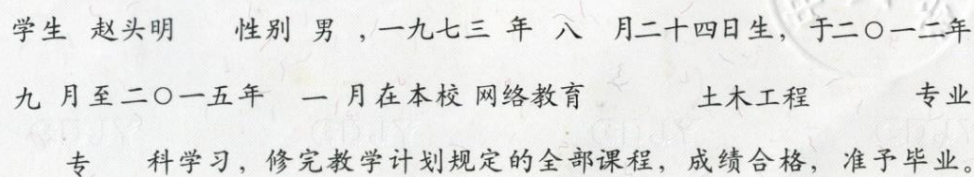 学生 赵头明 性别 男 ，一九七三 年 八 月二十四日生，于二〇一二年
九 月至二〇一五年 一 月在本校 网络教育 土木工程 专业
专 科学习，修完教学计划规定的全部课程，成绩合格，准予毕业。